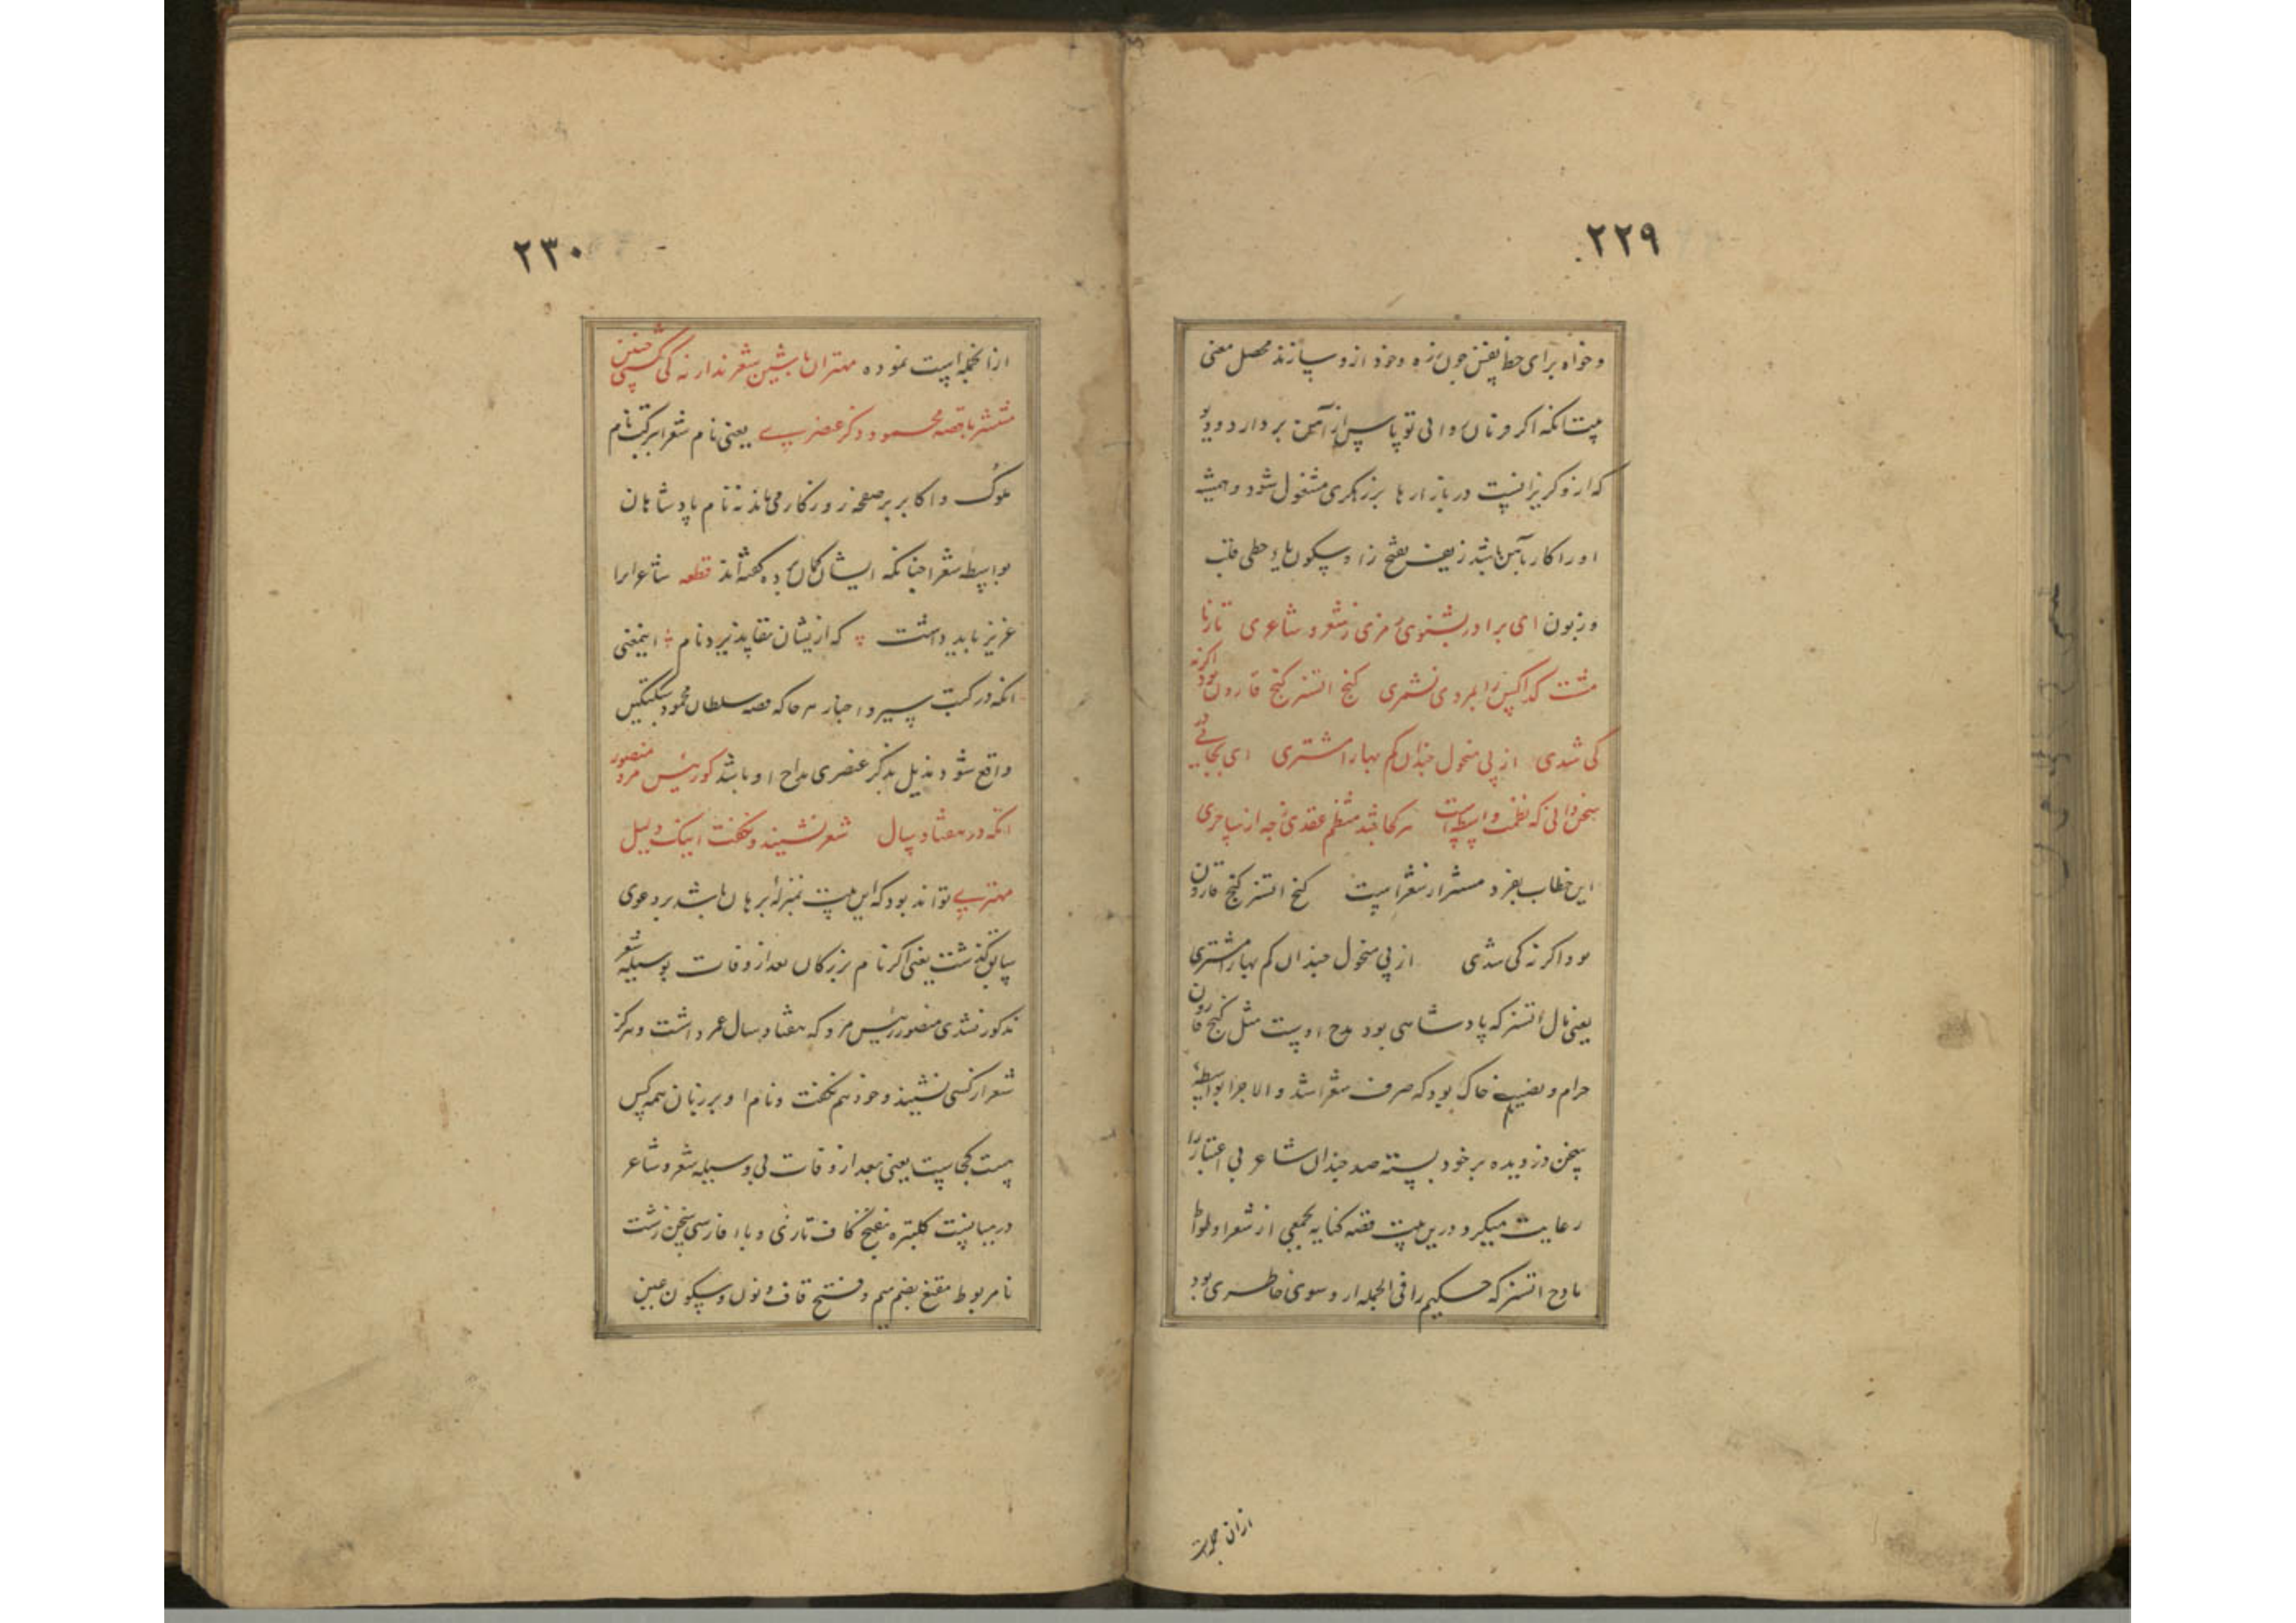 ۲۲۹
و خواه برای حظ نفس چون زه وخود ازو سازند محصل معنی
که ازو گریز نیست در بازارها بزرگری مشغول شود و همیشه
او را کار باین باشد زیف بفتح زا و سکون یاء حطی قلب
و زبون ای برادر بشنوی رمزی ز شعر و شاعری تا ز ما
مشت گدا کس را بمردی نشمری گنج اتسز گنج قارون بود اگر نه
کی شدی از پی منحول چندان کم بهارا مشتری ای بجائی در
سخندانی که نظمت واسطه است هر کجا شد منظم عقدی ز چه از ساحری
این خطاب بفرد مستر از شعراست گنج اتسز گنج قارون
بود اگر نه کی شدی از پی منحول چندان کم بهارا مشتری
یعنی مال اتسز که پادشاهی بود مدح اوست مثل گنج قارون
حرام و نصیب خاک بود که صرف شعرا شد و الا چرا بواسطه
سخن دزدیده بر خود بسته صد چندان شاعر بی اعتبار را
رعایت میکرد و درین بیت قصه کنایه بجمعی از شعرا و
مادح اتسز که حکیم را فی الجمله از و سوی خاطری بود
ازان جمله است
۲۳۰
از انجمله است نموده مهتران باشین شعرند ار نه کی گشتی چنین
منتشر با قصه محمود ذکر عنصری یعنی نام شعرا برکت نام
ملوک و اکابر بر صفحه روزگار می ماند نه نام پادشاهان
بواسطه شعرا چنانکه ایشان گمان برده گفته اند قطعه شاعرا را
عزیز باید داشت که ازیشان بقا پذیرد نام اینمعنی
انکه در کتب سیر و اخبار هر جا که قصه سلطان محمود سبکتکین
واقع شود مذیل بذکر عنصری مداح او باشد کو رئیس مرو منصور
انکه در هفتاد سال شعر نشنید و نگفت اینک دلیل
مهتری تواند بود که این بیت بمنزله برهان باشد بر دعوی
سابق گذشت یعنی اگر نام بزرگان بعد از وفات بوسیله شعر
مذکور نشدی منصور رئیس مرو که هفتاد سال عمر داشت و هرگز
شعر از کسی نشنید و خود هم نگفت و نام او بر زبان همه کس
هست کجاست یعنی بعد از وفات بی وسیله شعر و شاعر
در میا نیست کلپتره بفتح کاف تازی و باء فارسی سخن زشت
نا مربوط مقنع بضم میم و فتح قاف و نون و سکون عین